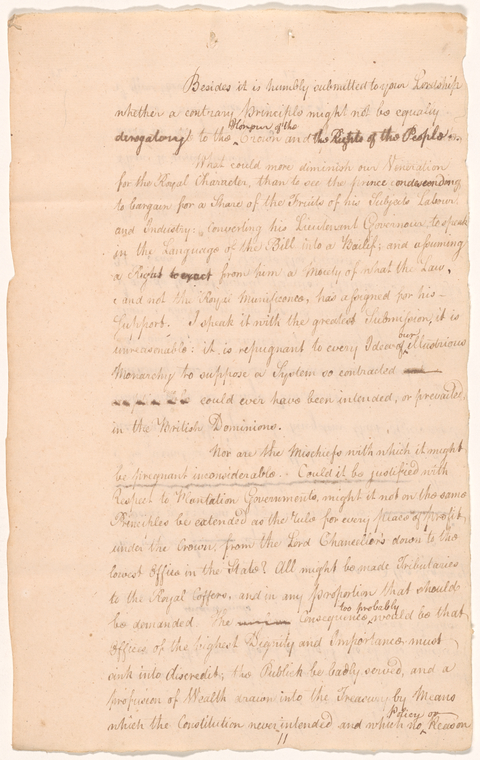 Besides it is humbly submitted to your Lordship
whether a contrary Principle might not be equally
derogatory to the Honour of the Crown and the Rights of the People.
What could more diminish our Veneration
for the Royal Character, than to see the prince condescending
to bargain for a Share of the Fruits of his Subjects Labour
and Industry: Converting his Lieutenant Governour to speak
in the Language of the Bill into a Bailif; and assuming
a Right to exact from him a Moiety of what the Law,
and not the Royal Munificence, has assigned for his
Support. I speak it with the greatest Submission, it is
unreasonable: it is repugnant to every Idea of our illustrious
Monarchy to suppose a System so contracted
could ever have been intended, or prevailed,
in the British Dominions.
Nor are the Mischiefs with which it might
be pregnant inconsiderable. Could it be justified with
Respect to Plantation Governments, might it not on the same
Principles be extended as the Rule for every place of profit,
under the Crown, from the Lord Chancellor's down to the
lowest Office in the State? All might be made Tributaries
to the Royal Coffers, and in any proportion that should
be demanded. The Consequence too probably would be that
Offices of the highest Dignity and Importance must
sink into discredit; the Publick be badly served, and a
profusion of Wealth drawn into the Treasury by Means
which the Constitution never intended and which no Policy or Reason
11